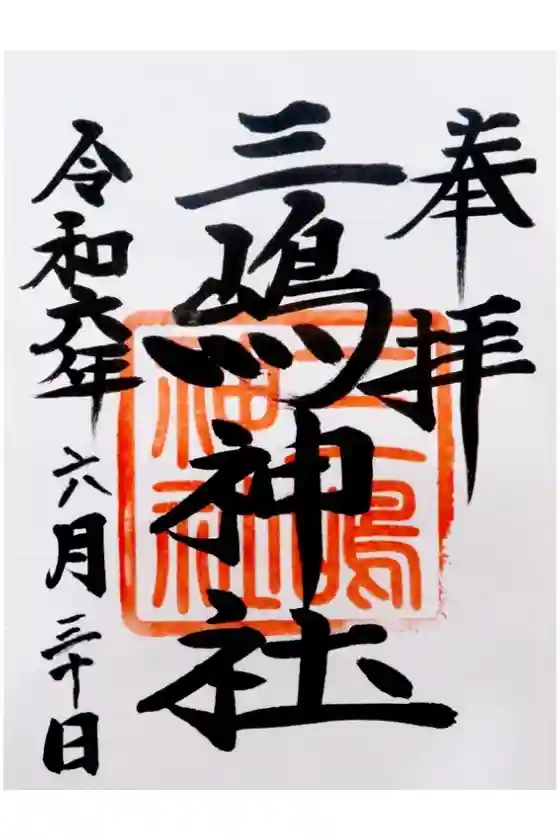 奉拝
三嶋神社
三嶋神社
令和六年六月三十日